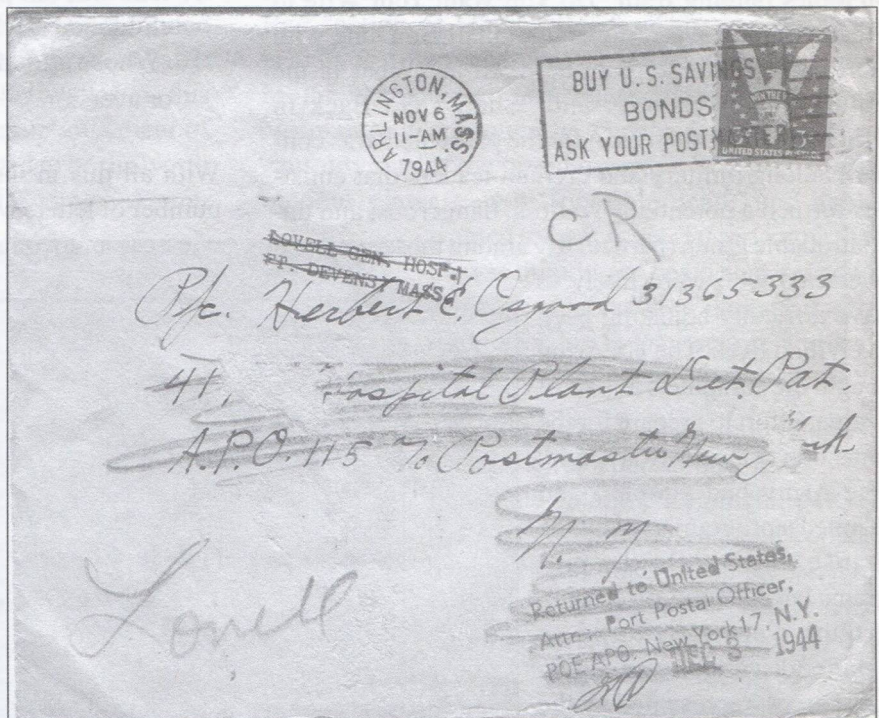 ARLINGTON, MASS.
NOV 6
11-AM
1944
BUY U.S. SAVINGS
BONDS
ASK YOUR POSTMASTER
UNITED STATES POSTAGE
CR
LOVELL GEN. HOSP.
FT. DEVENS, MASS.
Pfc. Herbert E. Osgood 31365333
41, Hospital Plant Det. Pat.
A.P.O. 115 % Postmaster New York
N. Y
Lovell
Returned to United States,
Attn: Port Postal Officer,
POE APO, New York 17, N.Y.
DEC 3 1944